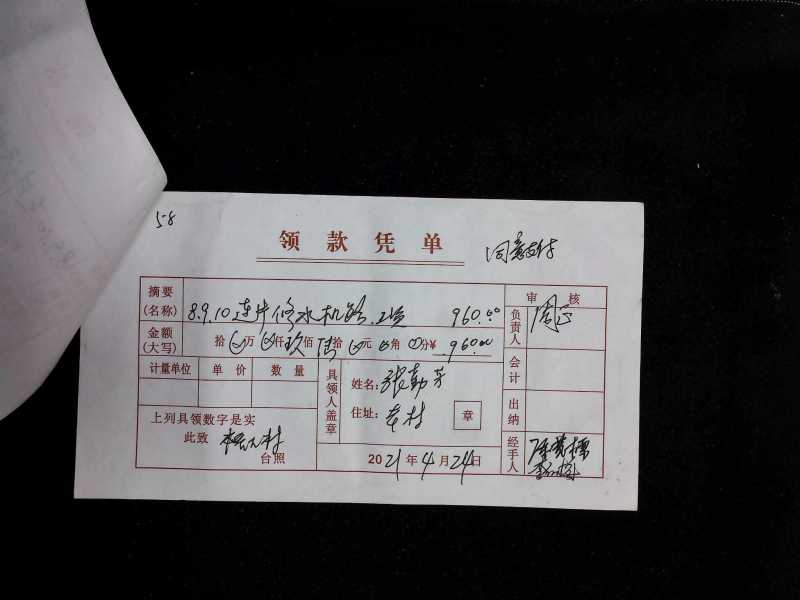 58
领款凭单
同意支付
摘要(名称) 8.9.10连片修水机路工资 960.00 审核
金额(大写) 拾万仟玖佰陆拾元角分¥960.00 负责人 周
计量单位 单价 数量 具领人盖章 姓名:张勤芳 会计
住址:本村 章 出纳
上列具领数字是实
此致 村 台照
2021年4月24日 经手人